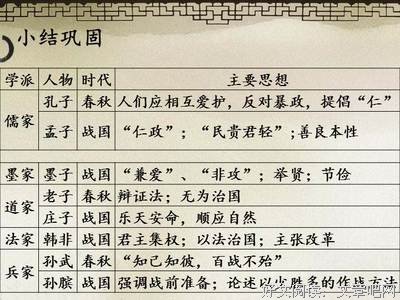 小结巩固
学派 人物 时代 主要思想
儒家 孔子 春秋 人们应相互爱护，反对暴政，提倡“仁”
孟子 战国 “仁政”；“民贵君轻”；善良本性
墨家 墨子 战国 “兼爱”、“非攻”；举贤；节俭
道家 老子 春秋 辩证法；无为治国
庄子 战国 乐天安命，顺应自然
法家 韩非 战国 君主集权；以法治国；主张改革
兵家 孙武 春秋 “知己知彼，百战不殆”
孙膑 战国 强调战前准备；论述以少胜多的作战方法
好文阅读：文章吧网